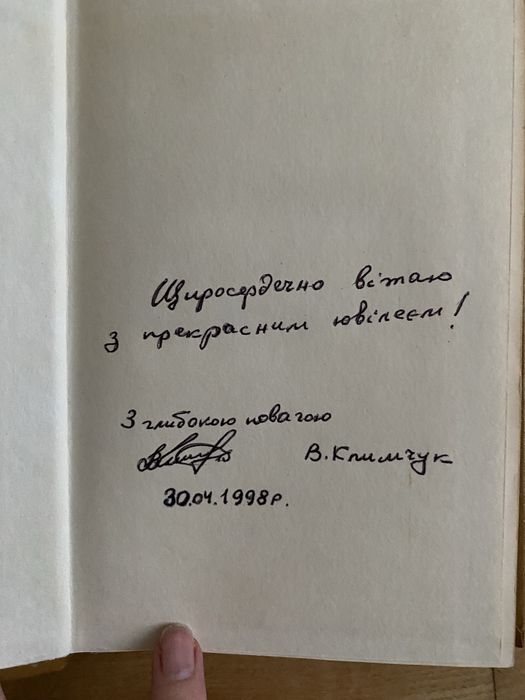 Щиросердечно вітаю
з прекрасним ювілеєм!
З глибокою повагою
В. Климчук
30.04.1998р.